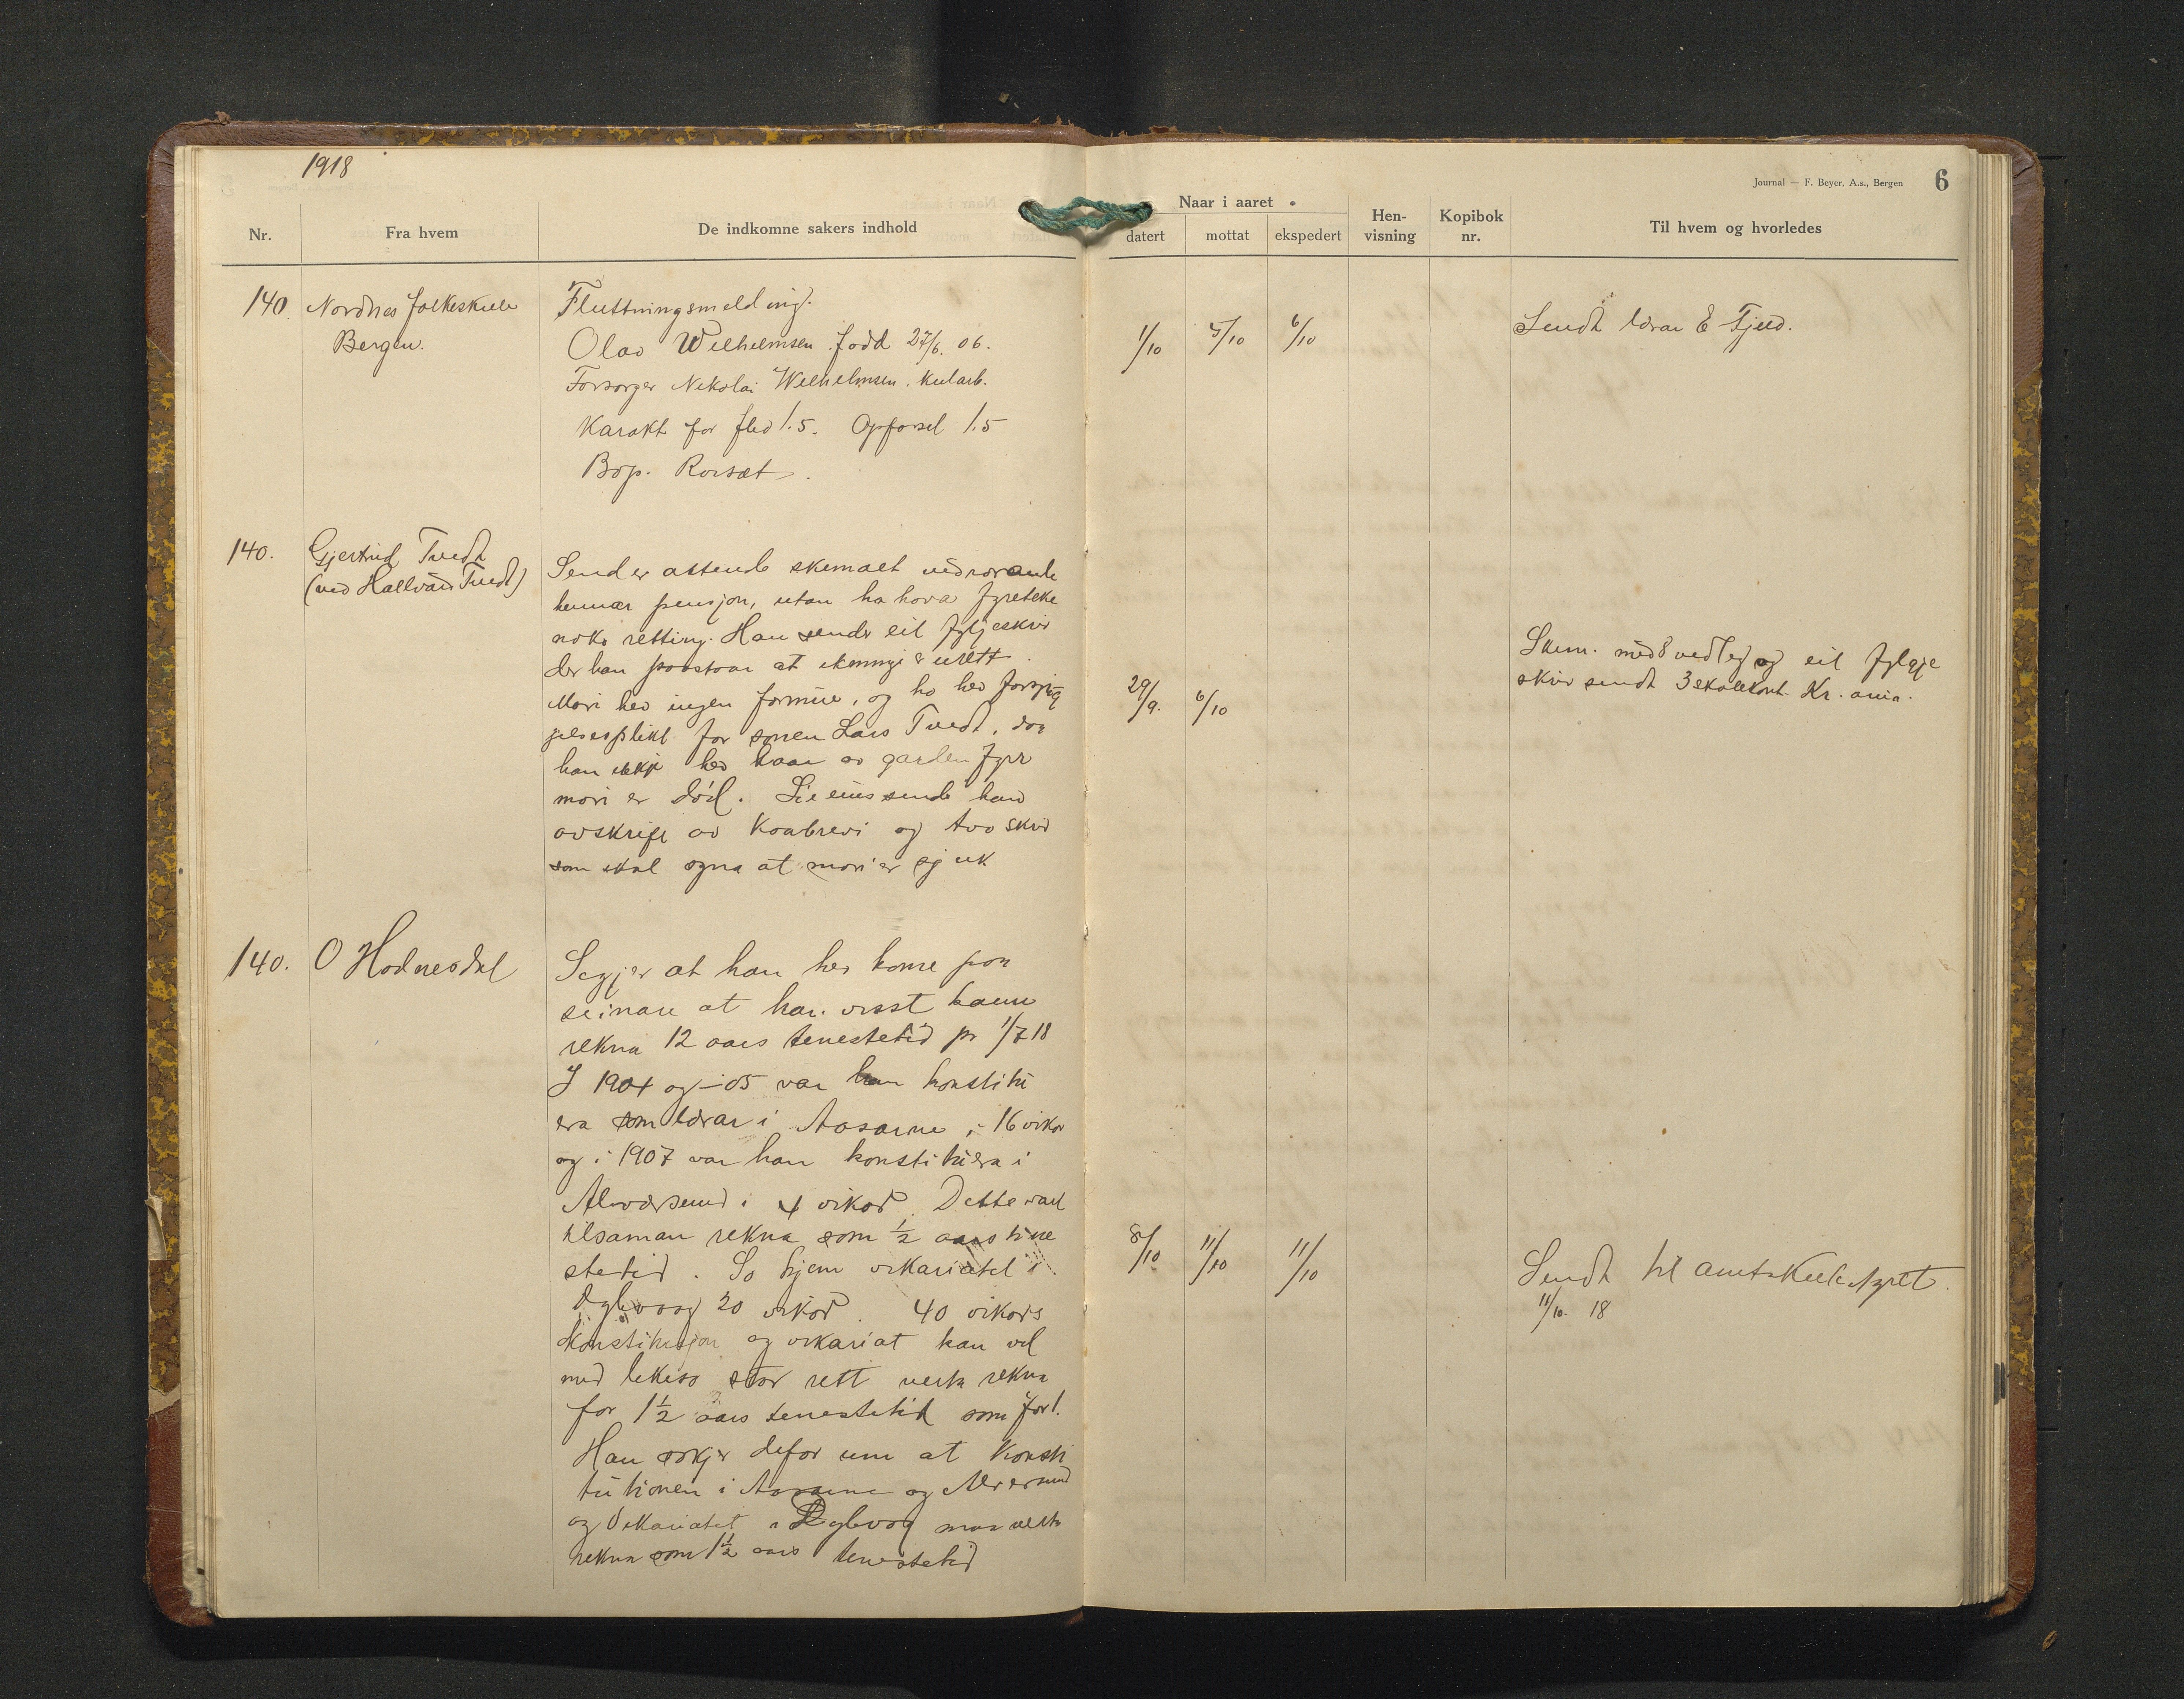 1918
Journal — F. Beyer, A.s., Bergen 6
Nr. Fra hvem De indkomne sakers indhold
Naar i aaret
datert mottat ekspedert
Hen-visning
Kopibok nr.
Til hvem og hvorledes
140 Nordnes folkeskule
Bergen.
Fluttningsmelding.
Olav Wilhelmsen. fødd 27/6. 06.
Forsorger Nikolai Wilhelmsen. kularb.
Karakt for flid 1.5. Opførsel 1.5
Bop. Rossæt.
1/10 5/10 6/10
Sendt lærar E Fjeld.
140. Gjertrud Tvedt
(ved Hallvard Tvedt)
Sender attende skemaet vedrørande
hennar pensjon, utan ha hava fyreteke
noko retting. Han sender eit fylgjeskriv
der han paastaar at er urett.
Mori hev ingen formue, og ho hev forsyrg
jelsesplikt for sonen Lars Tvedt, daa
han ikkje hev kaar av garden fyrr
mori er død. sende han
avskrift av Kaabrevi og tvo skriv
som skal syna at mori er sjuk
29/9. 6/10
Skem. med 8 vedlegg og eit fylgje
skriv sendt Kr. ania.
140. O Hodnesdal
Segjer at han hev kome paa
seinare at han visst kann
rekna 12 aars tenestetid pr 1/7 18
I 1904 og –05 var han konstitu
era som lærar i Aasarne i 16 vikor
og i 1907 var han konstituera i
Alversund i 4 vikor. Dette vart
tilsaman rekna som ½ aars tene
stetid. So kjem vikariatet i
Dylvaag 20 vikor. 40 vikors
Konstitusjon og vikariat kan vel
med likeso stor rett verta rekna
for 1½ aars tenestetid som for 1.
Han søkjer difor um at konsti
tutionen i Aasarne og Alversund
og Vikariatet i Dylvag maa verta
rekna som 1½ aars tenestetid
8/10 11/10 11/10
Sendt til amtskulestyret.
11/10. 18